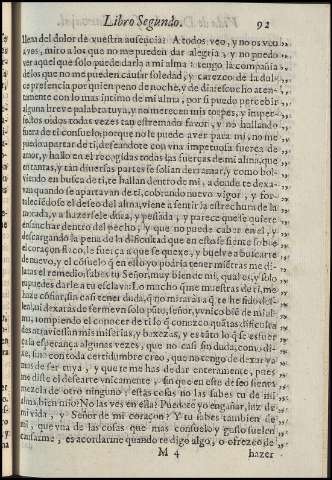 Libro Segundo. 92
llena del dolor de vuestra ausencia: A todos veo, y no os veo
aves, miro a los que no me pueden dar alegria, y no puedo
ver aquel que solo puede darla a mi alma: tengo la compañia
de los que no me pueden causar soledad, y carezco de la dul-
ce presencia por quien peno de noche, y de dia: escucho aten-
tamente con lo mas intimo de mi alma, por si puedo percebir
alguna breve palabra tuya, y no merecen mis torpes, y imper-
fetos oidos todas vezes tan estremado favor, y no hallando
fuera de ti consuelo, porque no le puede aver para mi, no me
puedo apartar de ti, deseandote con vna impetuosa fuerça de
amor, y hallo en el recogidas todas las fuerças de mi alma, que
en tantas, y tan diversas partes se solian derramar, y como bol-
viendo en busca de ti, te hallan dentro de mi, a donde te dexa-
van quando se apartavan de ti, cobrando nuevo vigor, y for-
taleciendose el deseo del alma, viene a sentir la estrechura de la
morada, y a hazersele dura, y pesada, y parece que se quiere
ensanchar dentro del pecho, y que no puede caber en el, y
descargando la pena de la dificultad que en esto se siente sobre
el coraçon flaco, le fuerça a que se quexe, y buelve a buscarte
de nuevo, y el cósuelo q en ello yo podria tener mientras me di-
latas el remedio, sabes tu Señor, muy bien de mi, qual es, y solo
tu puedes darle a tu esclava: Lo mucho q me muestras de ti, me
haze cófiar, sin casi tener duda, q no mirarás a q te he sido des-
leal, ni dexarás de ser me vn solo puto, señor, y vnico bié de mi al-
ma, rompiendo el conocer de ti lo q conozco, quátas dificultades
des atraviessan mis miserias, y baxezas, y es esto lo q se esfuer-
ça la esperança algunas vezes, que no casi sin duda, como di-
xe, sino con toda certidumbre creo, que no tengo de dexar ya
mas de ser tuya, y que te me has de dar enteramente, pues
me diste el desearte vnicamente, sin que en este deseo sienta
mezcla de otro ninguno, estas cosas no las sabes tu de mi
alma, bien mio? No las ves en ella? Puedete yo engañar, luz de
mi vida, y Señor de mi coraçon? Y tu sabes tambien de
mi, que vna de las cosas que mas consuelo y gusto suelen
causarme, es acordarme quando te digo algo, o ofrezco de
M 4 hazer